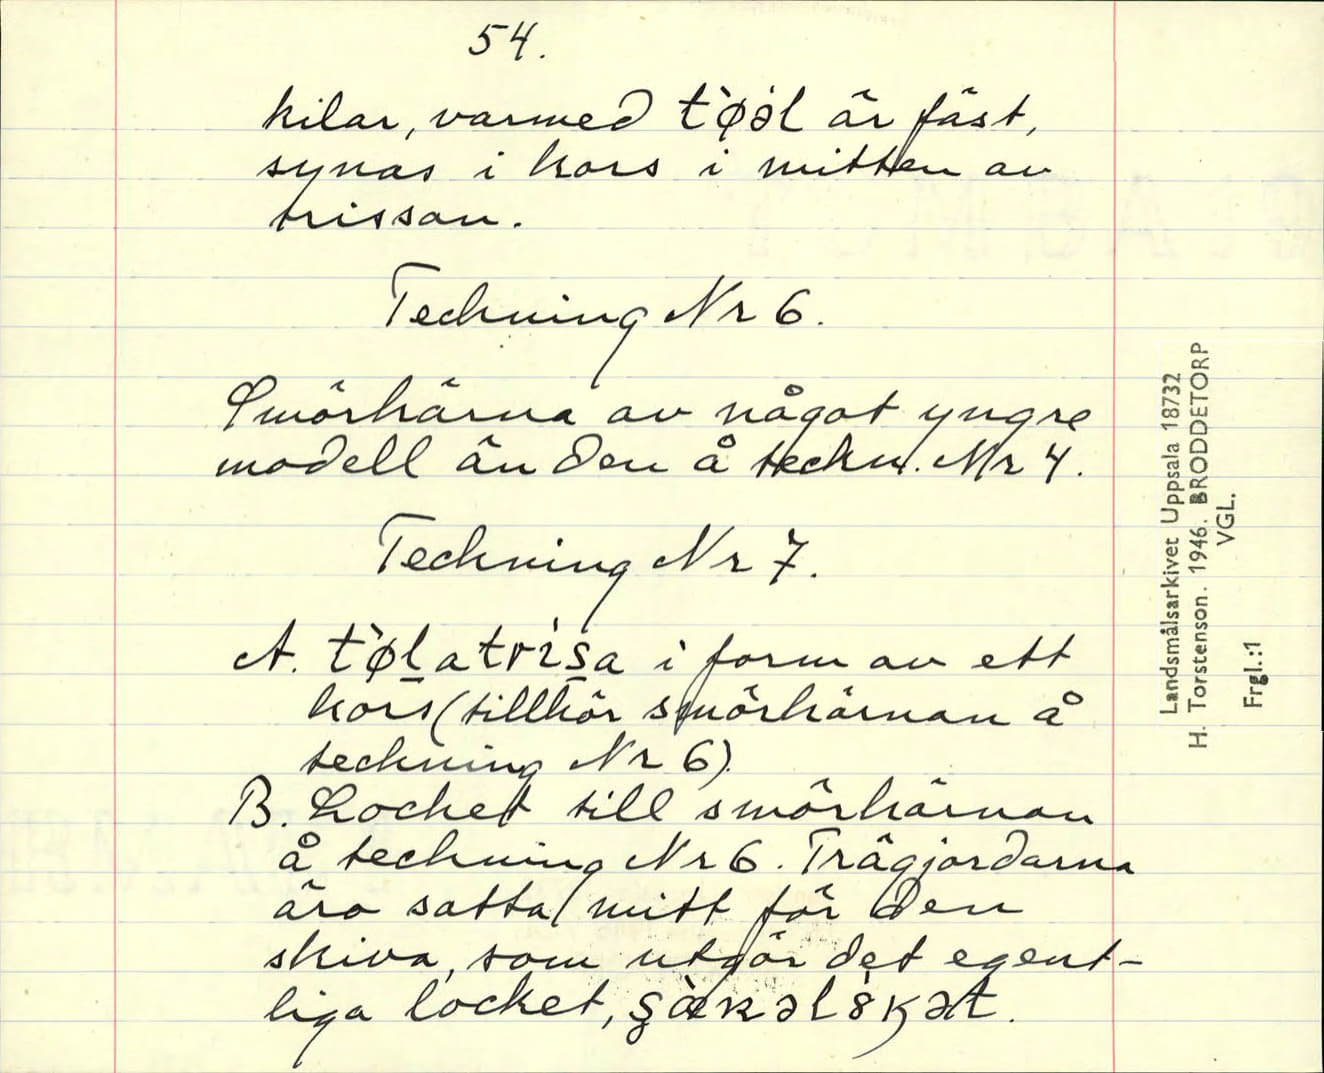 54.
kilar, varmed t̀øəl är fäst,
synas i kors i mitten av
trissan.
Teckning Nr 6.
Smörkärna av något yngre
modell än den å teckn. Nr 4.
Teckning Nr 7.
A. t̀øl̲atrìs̲a i form av ett
kors (tillhör smörkärnan å
teckning Nr 6).
B. Locket till smörkärnan
å teckning Nr 6. Trägjordarna
äro satta mitt för den
skiva, som utgör det egent-
liga locket,
Landsmålsarkivet Uppsala 18732
H. Torstenson. 1946. BRODDETORP
VGL.
Frgl.:1